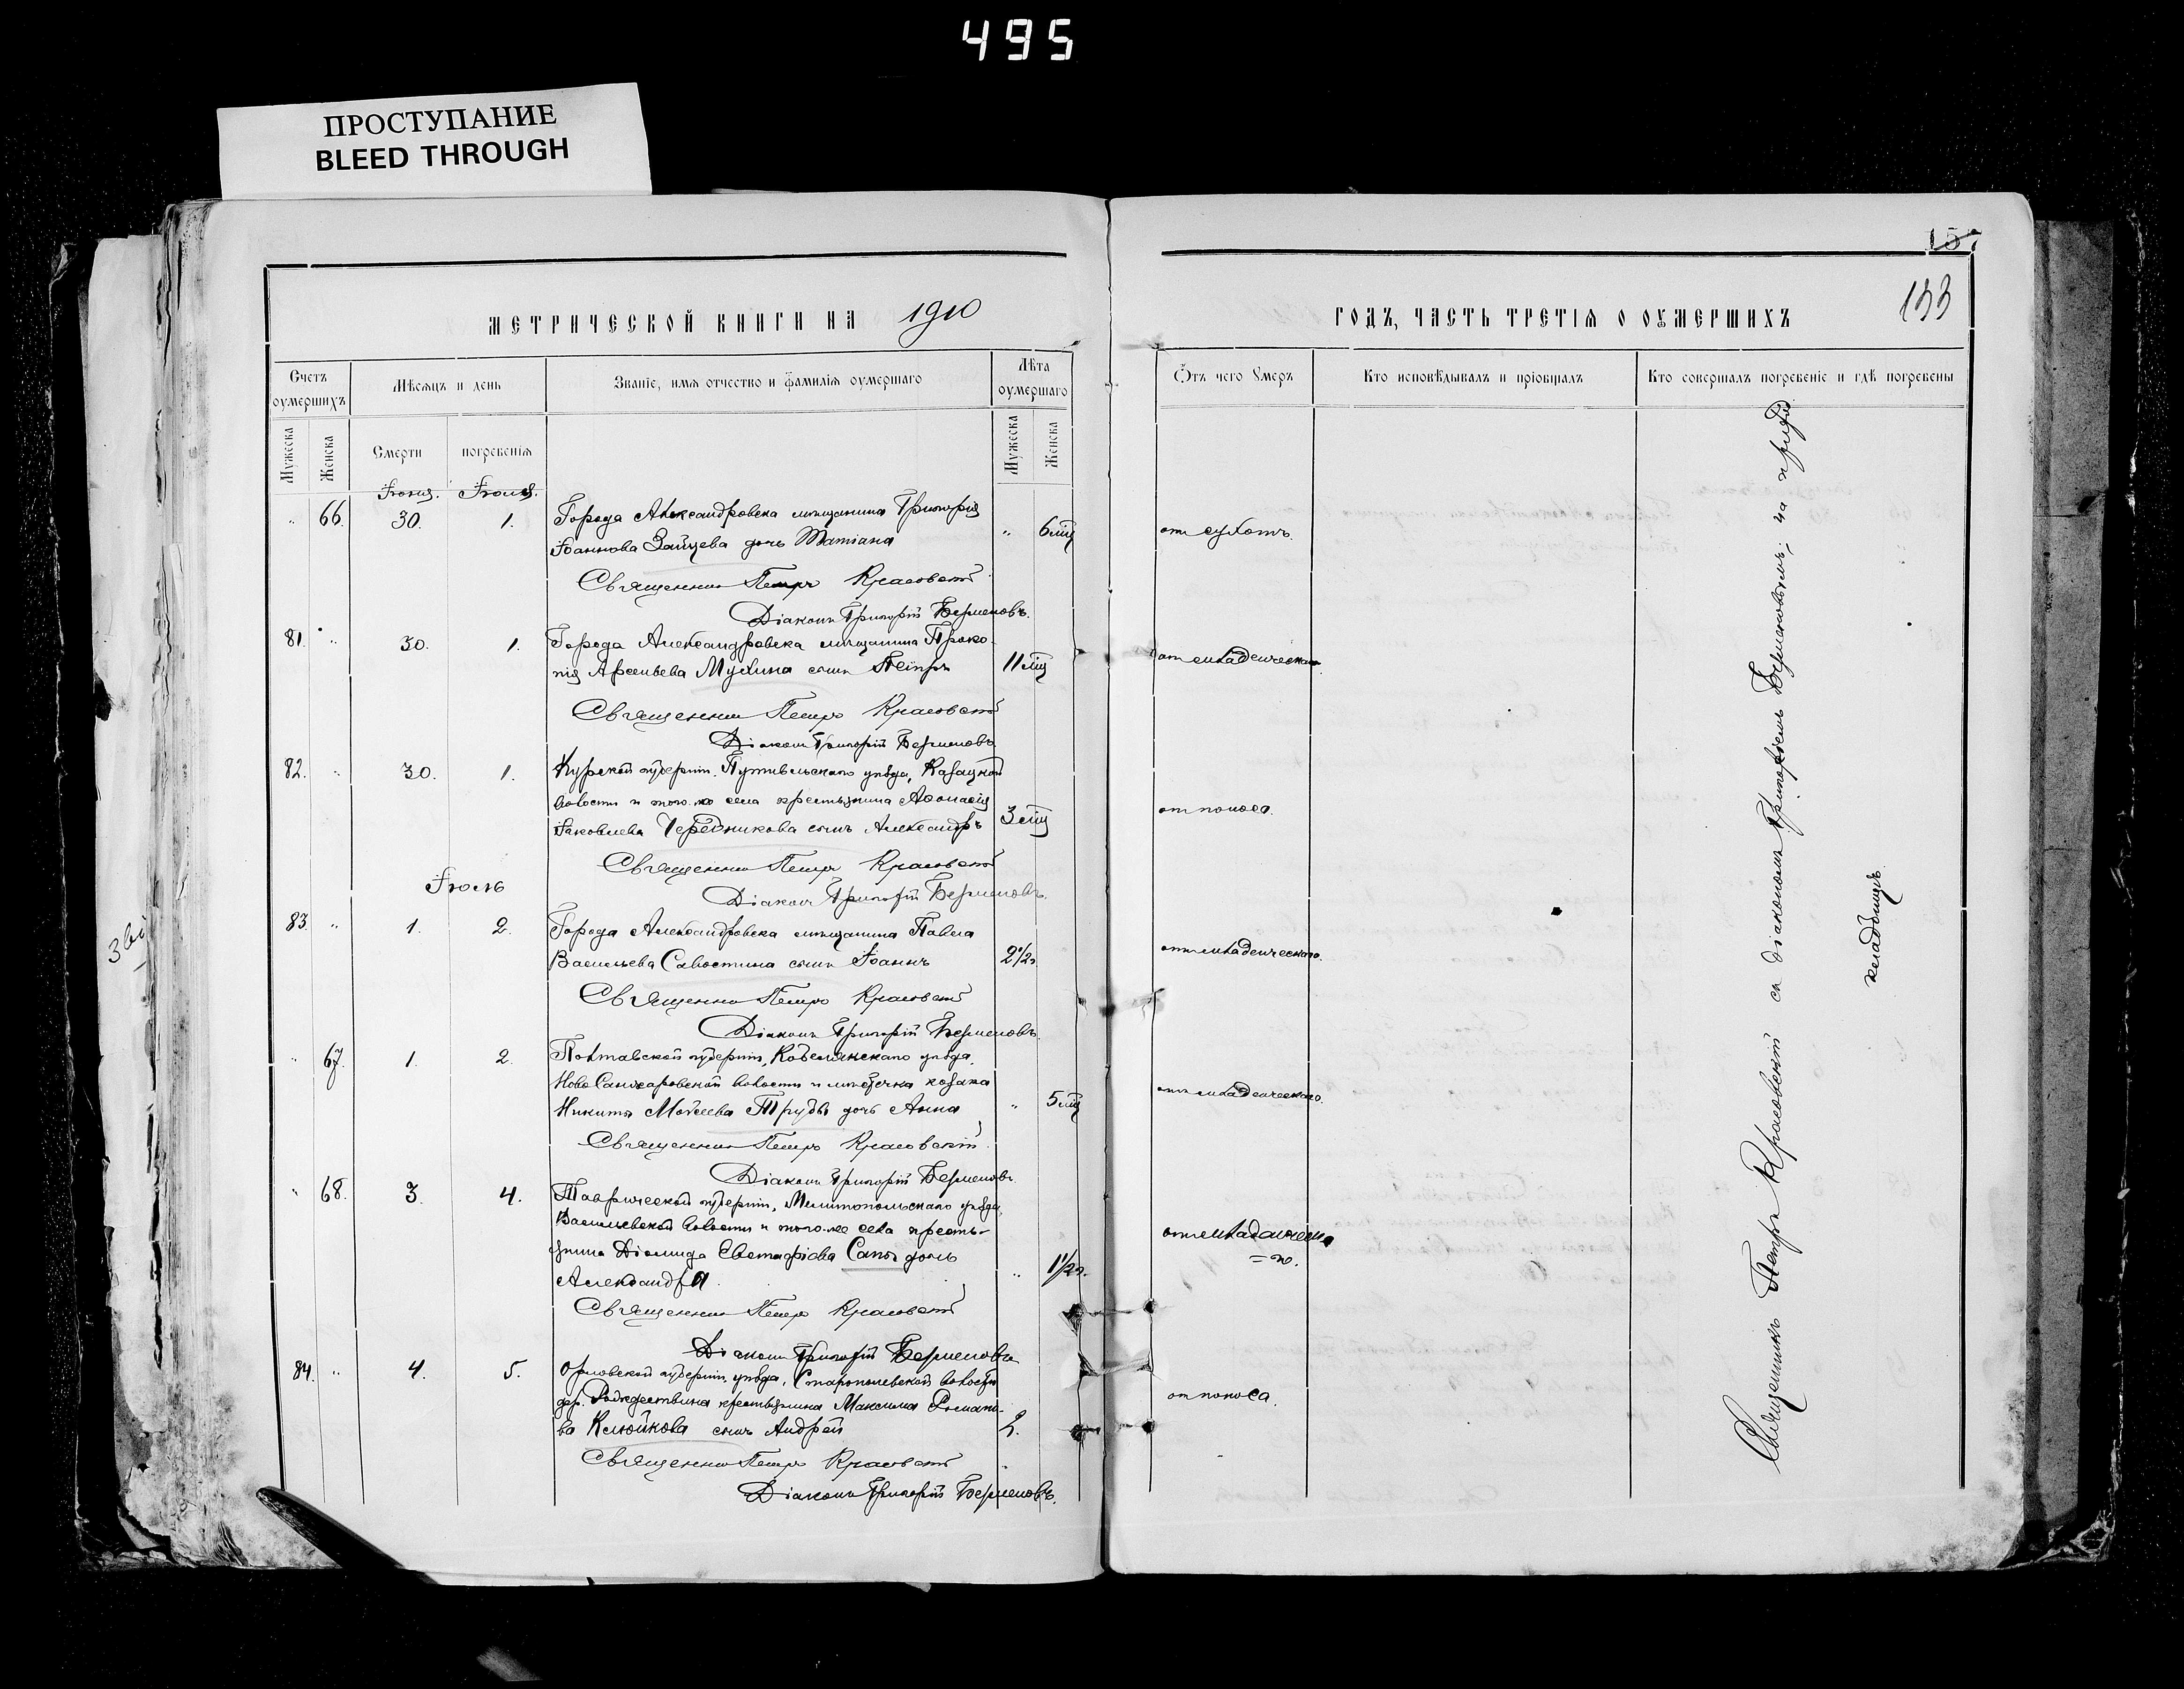 495
ПРОСТУПАНИЕ
BLEED THROUGH
157
133
МЕТРИЧЕСКОЙ КНИГИ НА 1910
ГОДЪ, ЧАСТЬ ТРЕТІЯ О ОУМЕРШИХЪ
Счетъ оумершихъ
Мѣсяцъ и день
Званіе, имя отчество и фамилія оумершаго
Лѣта оумершаго
Отъ чего Умеръ
Кто исповѣдывалъ и пріобщалъ
Кто совершалъ погребеніе и гдѣ погребены
Мужеска
Женска
Смерти
погребенія
Мужеска
Женска
Іюня. Іюля.
" 66. 30. 1. Города Александровска мѣщанина Григорія
Іоаннова Зайцева дочь Татіана " 6 мц отъ сухотъ.
Священникъ Петръ Красовскій
Діаконъ Григорій
81. " 30. 1. Города Александровска мѣщанина Проко-
пія Арсеньева Мухина сынъ Петръ 11 мц отъ младенческаго
Священникъ Петръ Красовскій
Діаконъ Григорій
82. " 30. 1. Курской губерніи, Путивльскаго уѣзда, Козацкой
волости и того-же села крестьянина Аѳонасія
Іаковлева Чередникова сынъ Александръ 3 мц отъ поноса.
Священникъ Петръ Красовскій
Іюль
Діаконъ Григорій
83. " 1. 2. Города Александровска мѣщанина Павла
Васильева Савостина сынъ Іоаннъ 2½ г. отъ младенческаго.
Священникъ Петръ Красовскій
Діаконъ Григорій
" 67. 1. 2. Полтавской губерніи, Кобелякскаго уѣзда,
Ново Санжаровской волости и мѣстечка козака
Никиты Моѵсеева Трубы дочь Анна " 5 мц отъ младенческаго.
Священникъ Петръ Красовскій
Діаконъ Григорій
" 68. 3. 4. Таврической губерніи, Мелитопольскаго уѣзда,
Васильевской волости и того-же села кресть-
янина Діомида Евстафіева Сапы дочь
Александра. " 1½ г. отъ младенческа
=го.
Священникъ Петръ Красовскій
Діаконъ Григорій
84. " 4. 5. Орловской губерніи, уѣзда, волости
дер. крестьянина Максима Романо-
ва Клюйкова сынъ Андрей отъ поноса.
Священникъ Петръ Красовскій
Діаконъ Григорій
Священникъ Петръ Красовскій съ діакономъ Григоріемъ на
кладбищѣ